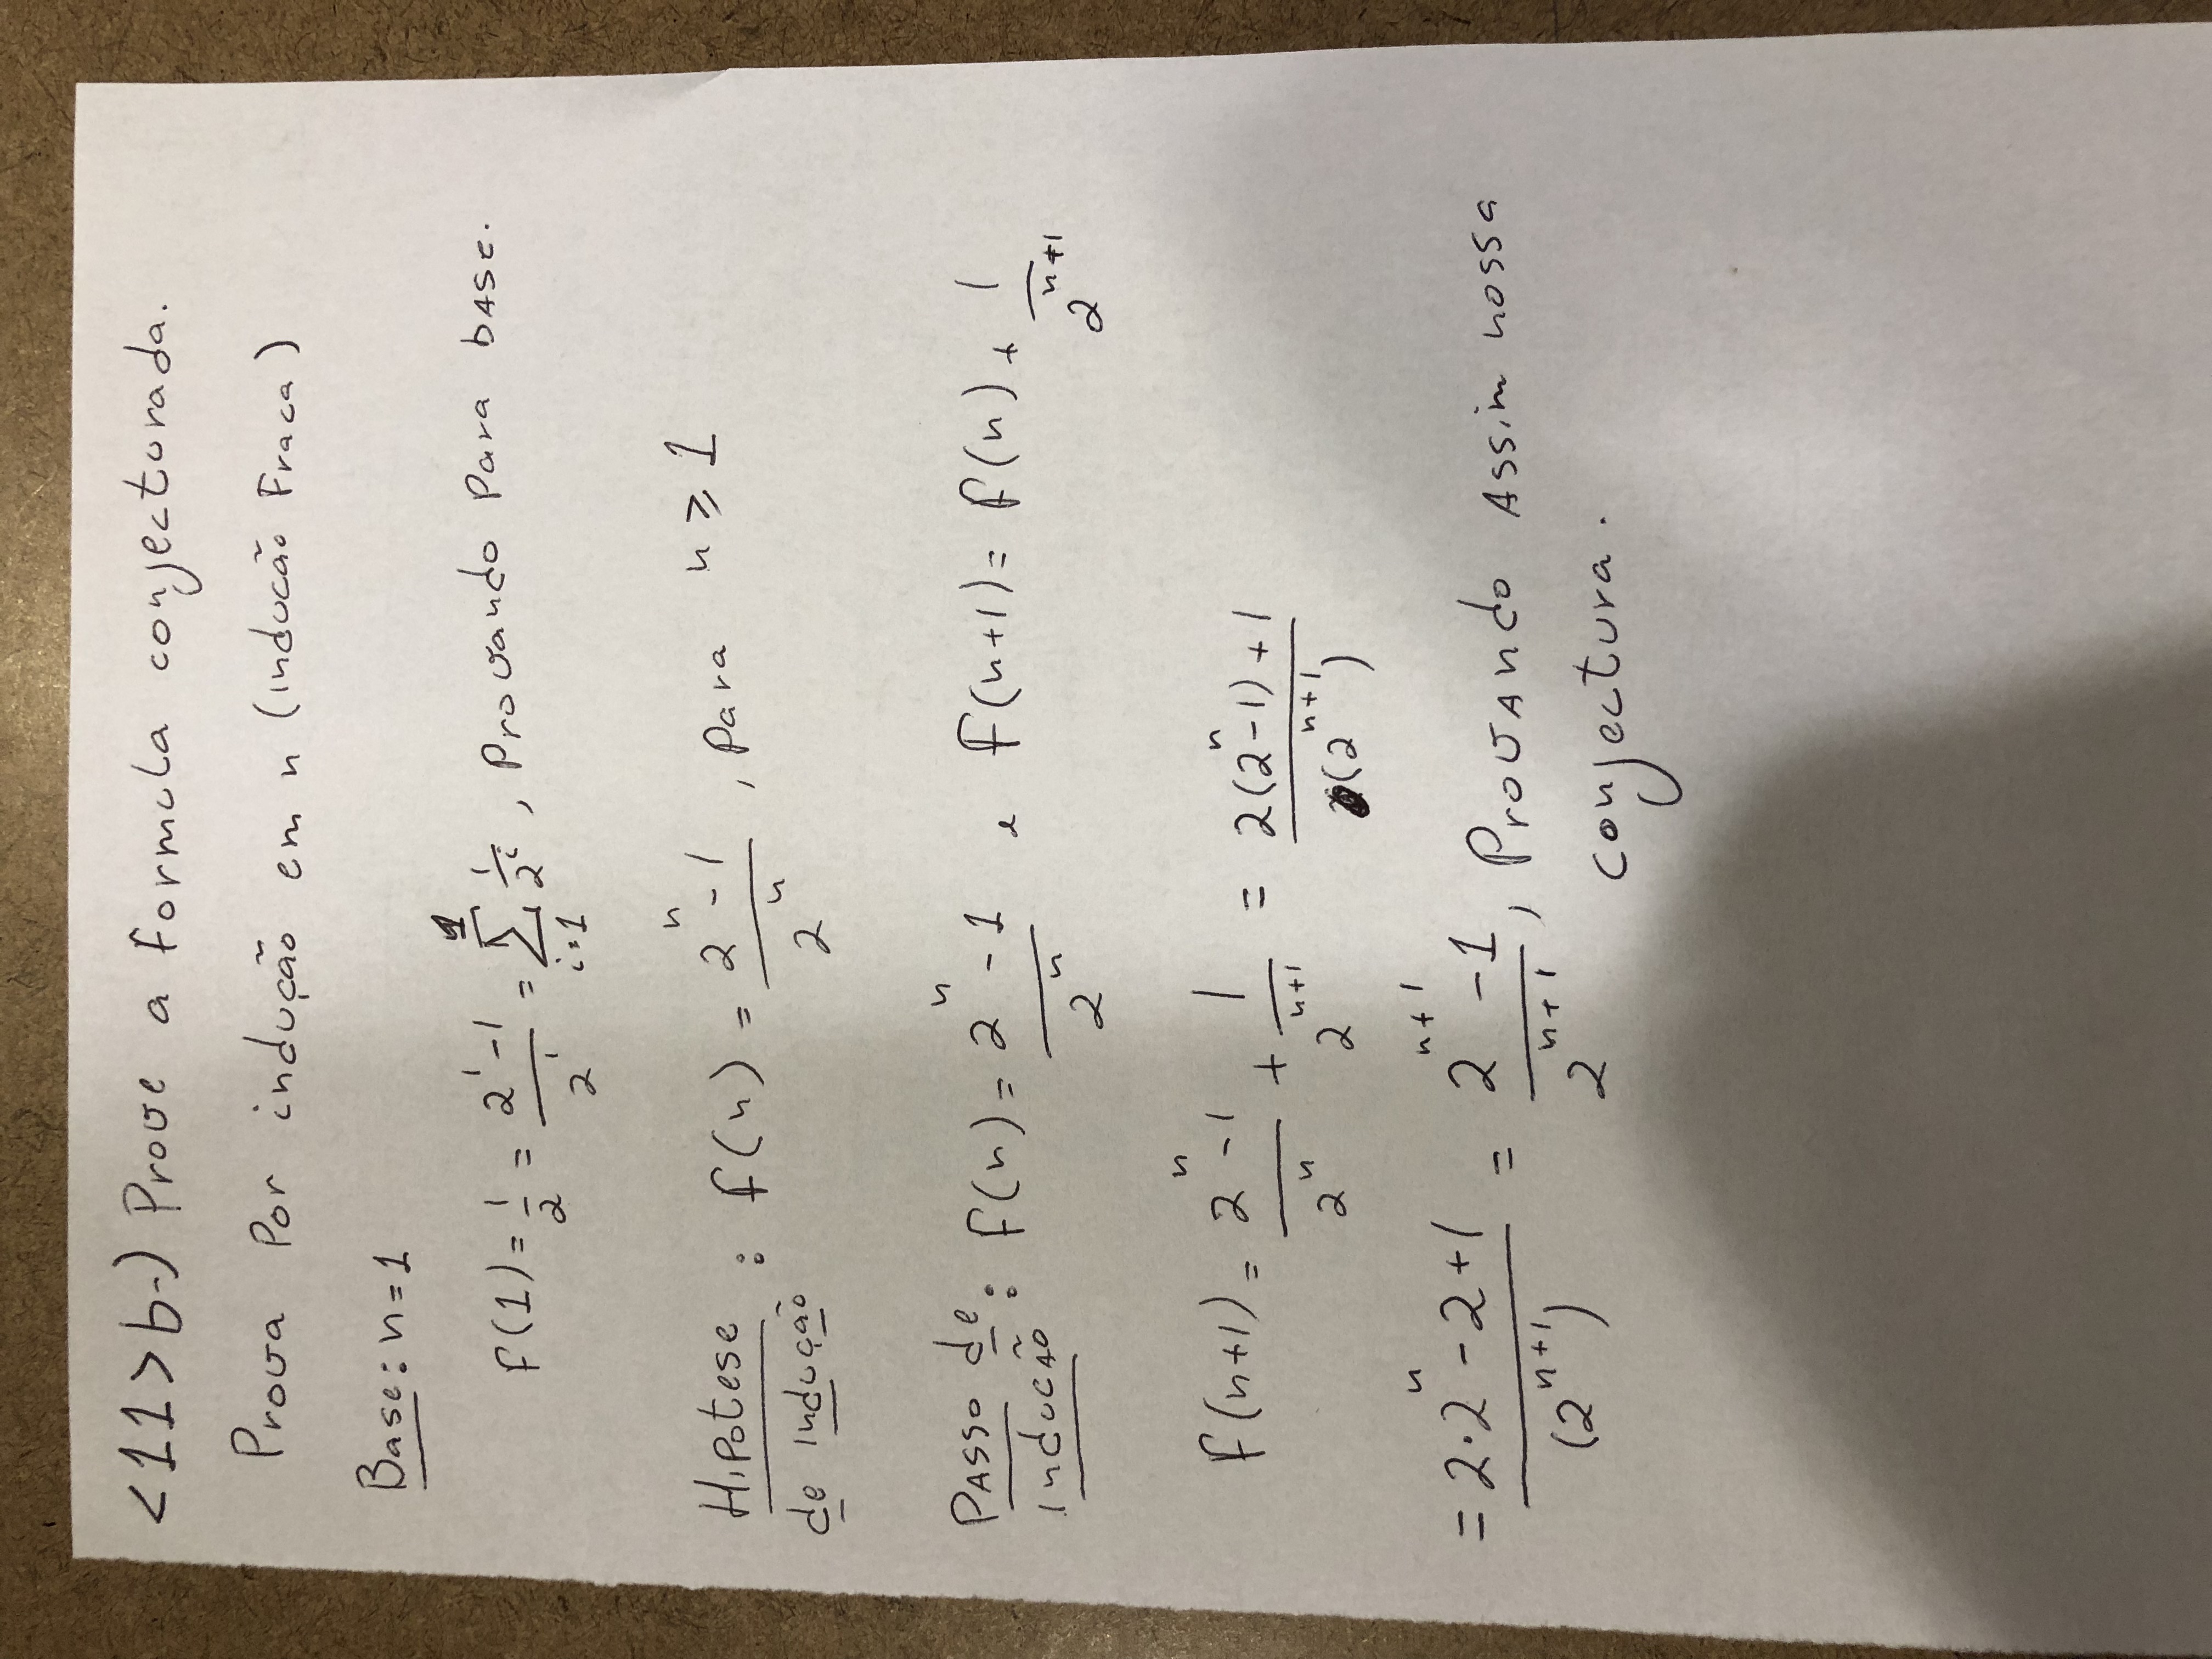 <11>b-) Prove a formula conjecturada.
Prova por indução em n (inducão Fraca)
Base: n=1
f(1) = 1/2 = (2^1 - 1)/2^1 = ∑_{i=1}^{1} 1/2^i, Provando para base.
Hipotese de indução : f(n) = (2^n - 1)/2^n, para n ≥ 1
Passo de inducão : f(n) = (2^n - 1)/2^n e f(n+1) = f(n) + 1/2^{n+1}
f(n+1) = (2^n - 1)/2^n + 1/2^{n+1} = (2(2^n - 1) + 1)/(2^{n+1})
= (2·2^n - 2 + 1)/(2^{n+1}) = (2^{n+1} - 1)/2^{n+1}, Provando Assim nossa
conjectura.